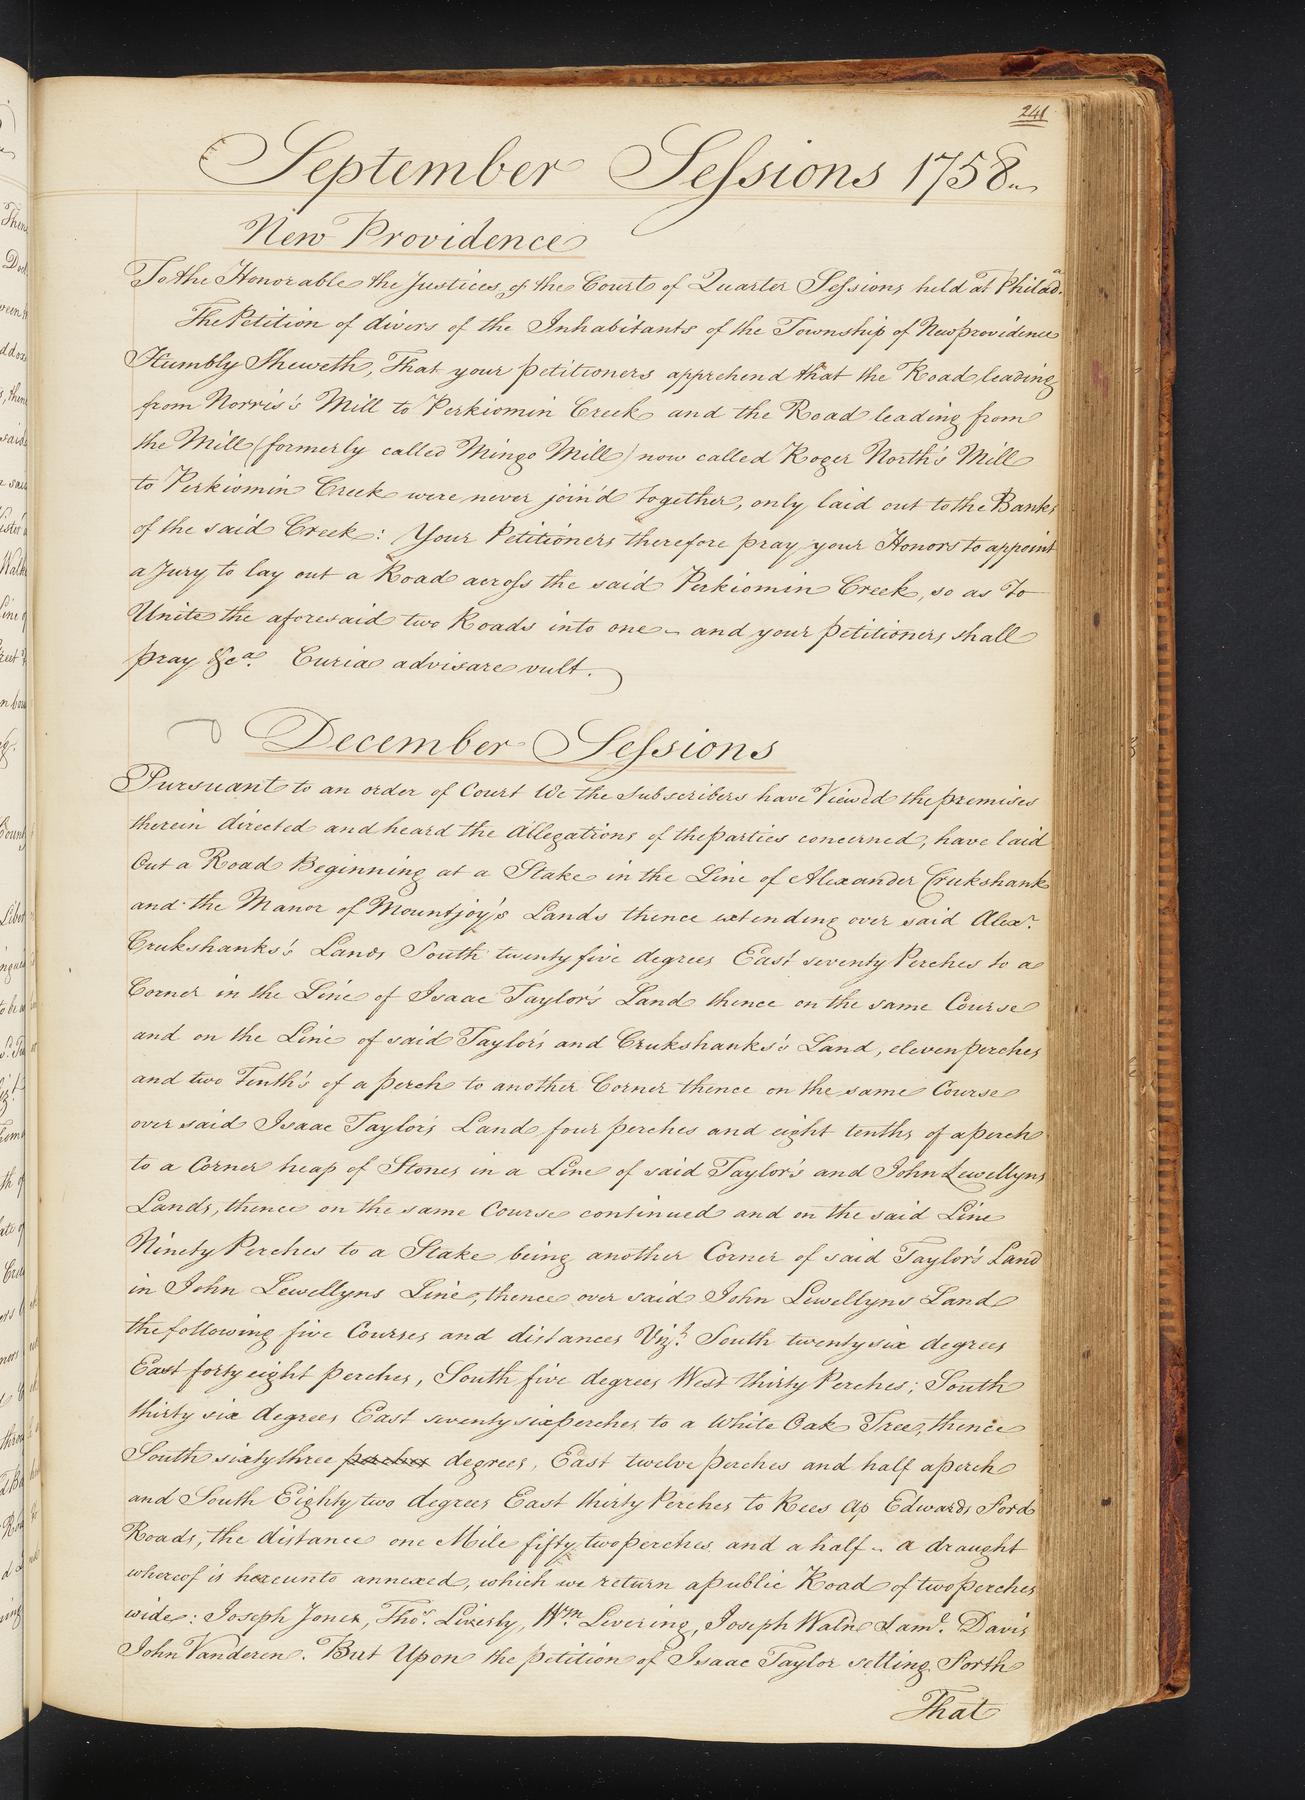 241
September Sessions 1758
New Providence
To the Honorable the Justices of the Court of Quarter Sessions held at Philad.a
The Petition of divers of the Inhabitants of the Township of New providence
Humbly Sheweth, That your petitioners apprehend that the Road leading
from Norris's Mill to Perkiomin Creek and the Road leading from
the Mill (formerly called Mingo Mill) now called Roger North's Mill
to Perkiomin Creek were never join'd together, only laid out to the Banks
of the said Creek: Your Petitioners therefore pray your Honors to appoint
a Jury to lay out a Road across the said Perkiomin Creek, so as to
Unite the aforesaid two Roads into one - and your petitioners shall
pray &c.a Curia advisare vult.
December Sessions
Pursuant to an order of Court We the Subscribers have Viewed the premises
therein directed and heard the Allegations of the parties concerned, have laid
Out a Road Beginning at a Stake in the Line of Alexander Crukshank
and the Manor of Mountjoy's Lands thence extending over said Alex.r
Crukshanks's Lands South twenty five degrees East seventy Perches to a
Corner in the Line of Isaac Taylor's Land thence on the same Course
and on the Line of said Taylor's and Crukshanks's Land, eleven perches
and two Tenth's of a perch to another Corner thence on the same Course
over said Isaac Taylor's Land four perches and eight tenths of a perch
to a Corner heap of Stones in a Line of said Taylor's and John Lewellyns
Lands, thence on the same Course continued and on the said Line
Ninety Perches to a Stake being another Corner of said Taylor's Land
in John Lewellyns Line, thence over said John Lewellyns Land
the following five Courses and distances Vizt. South twenty six degrees
East forty eight perches, South five degrees West thirty Perches; South
thirty six degrees East seventy six perches to a White Oak Tree, thence
South sixty three perches degrees, East twelve perches and half a perch
and South Eighty two degrees East thirty Perches to Rees ap Edwards Ford
Roads, the distance one Mile fifty two perches and a half - a draught
whereof is hereunto annexed, which we return a public Road of two perches
wide: Joseph Jones, Tho.s Liverly, W.m Levering, Joseph Waln Sam.l Davis
John Vanderen. But Upon the petition of Isaac Taylor setting Forth
That